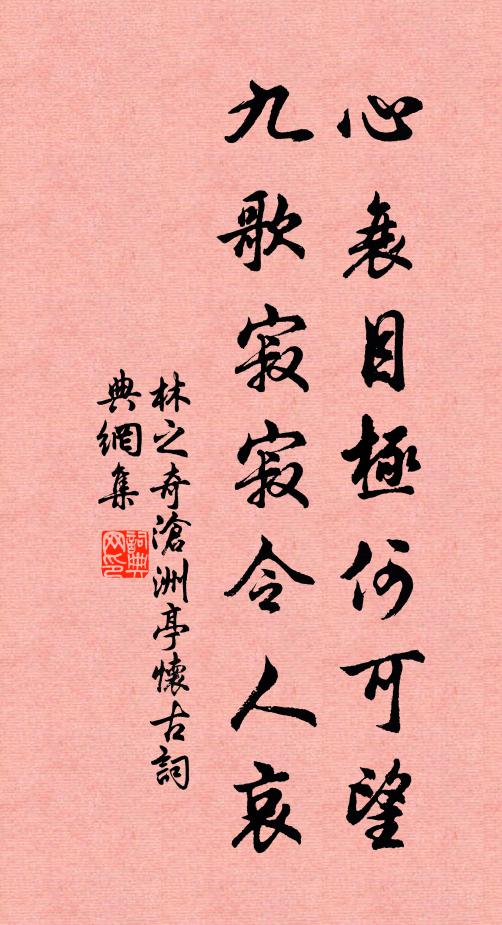 心衰目極何可望
九歌寂寂令人哀
林之奇滄洲亭懷古詞
典網集
詞典
网印